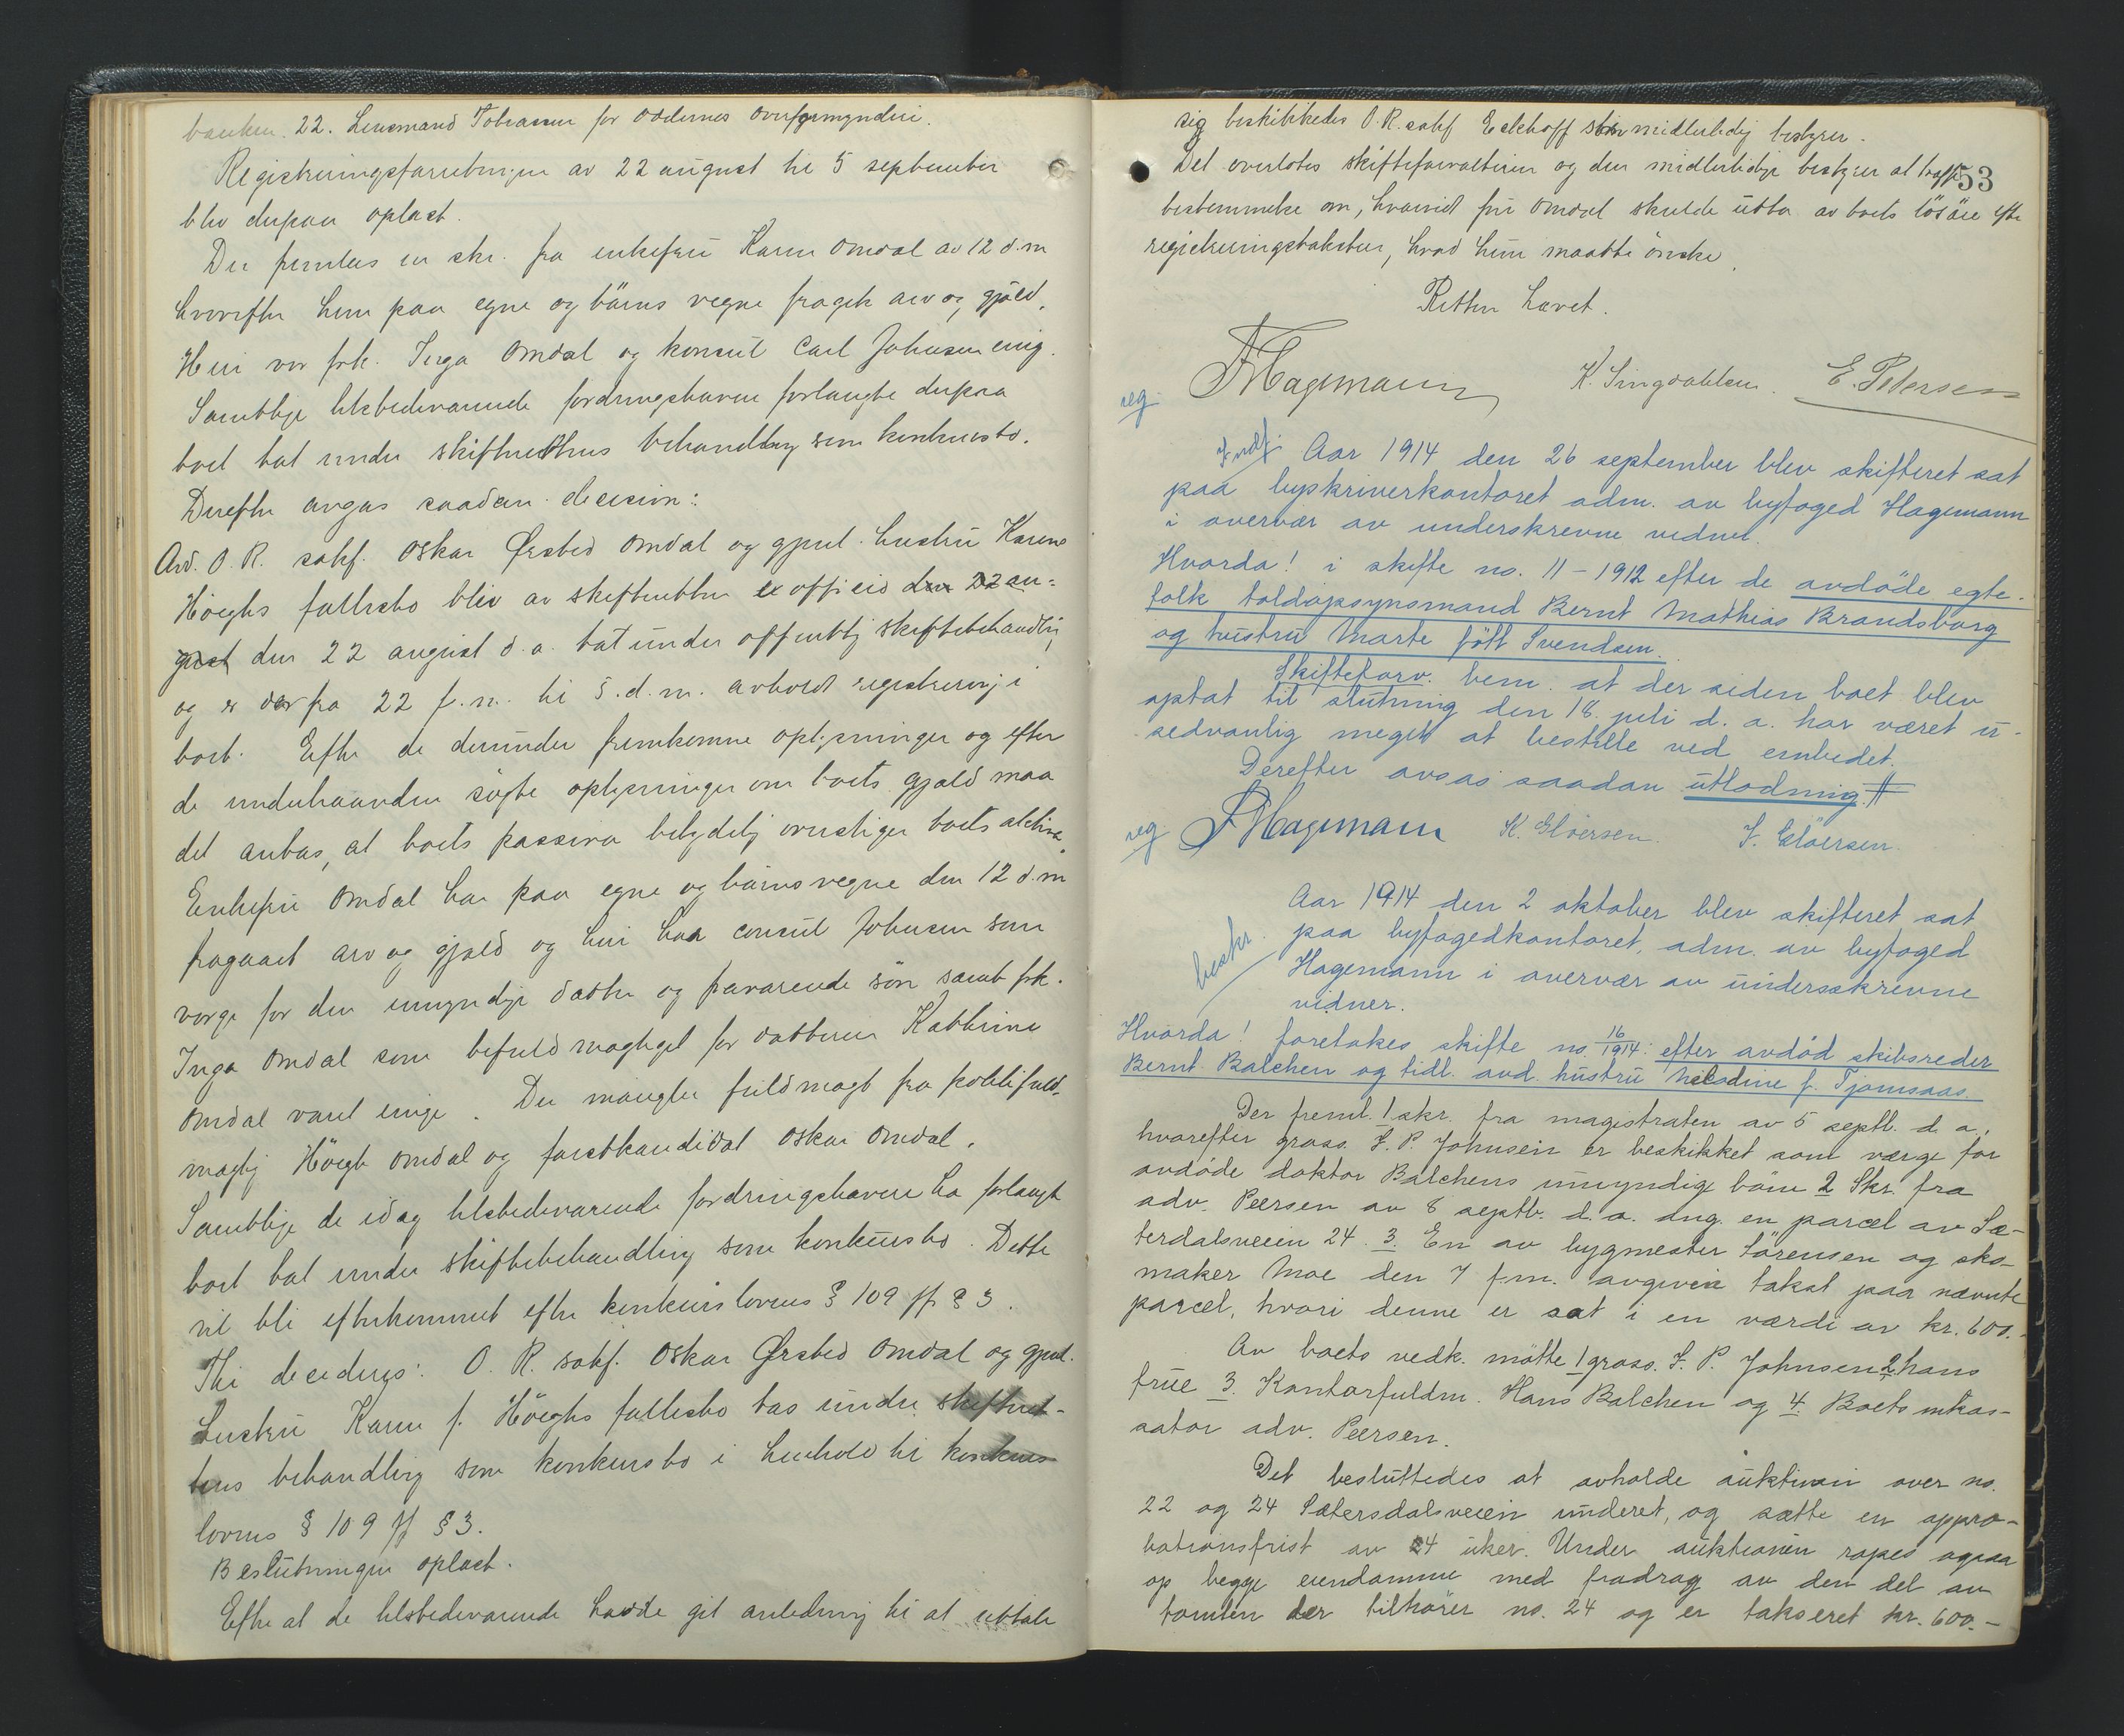 banken. 22. Lensmand Tobiassen for oddernes overformynderi.
Registreringsforretningen av 22 august til 5 september
blev derpaa oplæst.
Der fremlaes en skr. fra enkefru Karen Omdal av 12 d.m
hvorefter hun paa egne og börns vegne fragik arv og gjæld.
Heri var frk. Inga Omdal og konsul Carl Johnsen enig.
Samtlige tilstedeværende fordringshavere forlangte derpaa
boet tat under skifterettens behandling som konkursbo.
Derefter avgas saadan decision:
Avd. O. R. sakf. Oskar Ørsted Omdal og gjenl. hustru Karen
Höeghs fællesbo blev av skifteretten ex officio den 22 au=
gust den 22 august d.a. tat under offentlig skiftebehandling
og er der fra 22 f.m. til 5.d.m. avholdt registrering i
boet. Efter de derunder fremkomne oplysninger og efter
de underhaanden søgte oplysninger om boets gjæld maa
det antas, at boets passiva betydelig overstiger boets aktiva.
Enkefru Omdal har paa egne og börns vegne den 12 d.m
fragaaet arv og gjæld og heri har consul Johnsen som
verge for den umyndige datter og fraværende sön samt frk.
Inga Omdal som befuldmægtiget for datteren Kathrine
Omdal været enige. Der mangler fuldmagt fra politifuld-
mægtig Höegh Omdal og forstkandidat Oskar Omdal.
Samtlige de idag tilstedeværende fordringshavere har forlangt
boet tat under skiftebehandling som konkursbo. Dette
vil bli efterkommet efter konkurslovens § 109 jf § 3.
Thi decideres: O. R. sakf. Oskar Ørsted Omdal og gjenl.
hustru Karen f. Höeghs fællesbo tas under skifteret-
tens behandling som konkursbo i henhold til konkurs
lovens § 109 jf § 3.
Beslutningen oplæst.
Efter at de tilstedeværende hadde git anledning til at uttale
sig beskikkedes O. R. sakf Eckhoff som midlertidig bestyrer.
Det overlotes skifteforvalteren og den midlertidige bestyrer at træffe
53
bestemmelse om, hvorvidt fru Omdal skulde utta av boets lösöre efter
registreringstaksten, hvad hun maatte önske.
Retten hævet.
reg. FHagemann K. Singdahlsen. E. Pedersen
Aar 1914 den 26 september blev skifteret sat
paa byskriverkontoret adm. av byfoged Hagemann
i overvær av underskrevne vidner.
Hvorda! i skifte no. 11 - 1912 efter de avdöde egte-
folk toldopsynsmand Bernt Mathias Brandsborg
og hustru Marte född Svendsen.
Skifteforv. bem. at der siden boet blev
optat til slutning den 18. juli d. a. har været u-
sedvanlig meget at bestille ved embedet.
Derefter avsas saadan utlodning #
reg. FHagemann K. Elöersen. J. Elöersen.
Aar 1914 den 2 oktober blev skifteret sat
paa byfogedkontoret, adm. av byfoged
beskr. Hagemann i overvær av undersskrevne
vidner.
Hvorda! foretokes skifte no. 16/1914: efter avdöd skibsreder
Bernt Balchen og tidl. avd. hustru Nilsdine f. Tjomsaas.
Der freml. 1 skr. fra magistraten av 5 septb. d. a.,
hvorefter gross. J. P. Johnsen er beskikket som værge for
avdöde doktor Balchens umyndige börn 2 Skr. fra
adv. Peersen av 8 septb. d. a. ang. en parcel av Sæ-
terdalsveien 24. 3. En av bygmester Sörensen og sko-
maker Moe den 7 f.m. avgiven takst paa nævnte
parcel, hvori denne er sat i en værdi av kr. 600.-
Av boets vedk. mötte 1 gross. J. P. Johnsen 2 hans
frue 3. Kontorfuldm. Hans Balchen og 4. Boets inkas-
sator adv. Peersen.
Det besluttedes at avholde auktion over no.
22 og 24 Sætersdalsveien underet, og sætte en appro-
bationsfrist av 4 uker. Under auktionen ropes ogsaa
op begge eiendomme med fradrag av den del av
tomten der tilhörer no. 24 og er takseret kr. 600.-